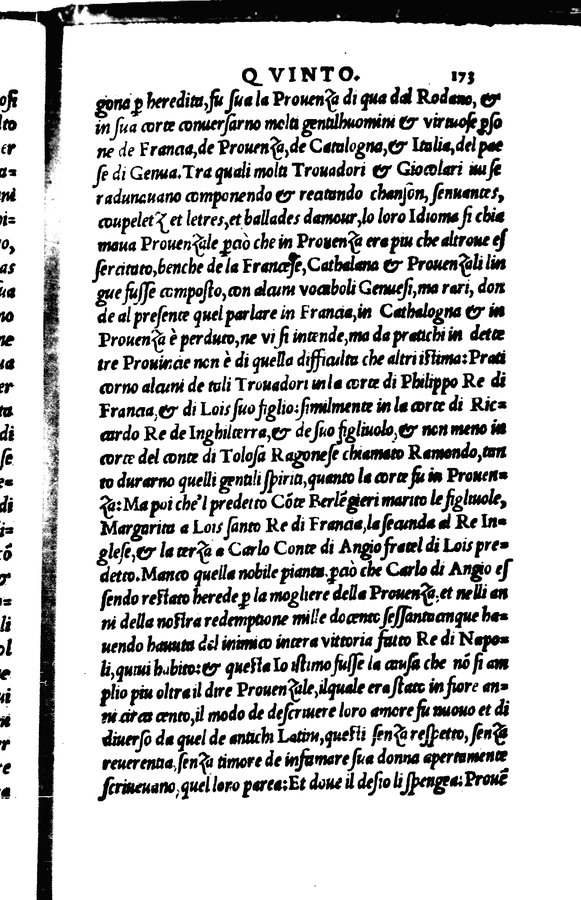 Q VINTO. 173
gona p̱ heredita, fu sua la Prouenza di qua dal Rodano, &
in sua corte conuersarno molti gentilhuomini & virtuose p̱so
ne de Francia, de Prouenza, de Catalogna, & Italia, del pae
se di Genua. Tra quali molti Trouadori & Giocolari iui se
radunauano componendo & recitando chansōn, seruantes,
coupeletz et letres, et ballades damour, lo loro Idioma si chia
maua Prouenzale p̱cio che in Prouenza era piu che altroue es
sercitato, benche de la Francese, Cathalana & Prouenzali lin
gue fusse composto, con alcuni vocaboli Genuesi, ma rari, don
de al presente quel parlare in Francia, in Cathalogna & in
Prouenza è perduto, ne vi si intende, ma da pratichi in dette
tre Prouincie non è di quella difficulta che altri istima: Prati
corno alcuni de tali Trouadori in la corte di Philippo Re di
Francia, & di Lois suo figlio: similmente in la corte di Ric=
cardo Re de Inghilterra, & de suo figliuolo, & non meno in
corte del conte di Tolosa Ragonese chiamato Ramondo, tan
to durarno quelli gentili spiriti, quanto la corte fu in Prouen=
za: Ma poi che'l predetto Cōte Berlēgieri marito le figliuole,
Margarita a Lois santo Re di Francia, la secunda al Re In=
glese, & la terza a Carlo Conte di Angio fratel di Lois pre=
detto. Manco quella nobile pianta, p̱cio che Carlo di Angio es
sendo restato herede p̱ la mogliere della Prouenza, et nelli an
ni della nostra redemptione mille docento sessantacinque ha=
uendo hauuta del inimico intera vittoria fatto Re di Napo=
li, quiui habito: & questa Io istimo fusse la causa che nō si am
plio piu oltra il dire Prouenzale, ilquale era stato in fiore an=
ni circa cento, il modo de descriuere loro amore fu nuouo et di
diuerso da quel de antichi Latini, questi senza respetto, senza
reuerentia, senza timore de infamare sua donna apertamente
scriueuano, quel loro parea: Et doue il desio li spengea: Prouē